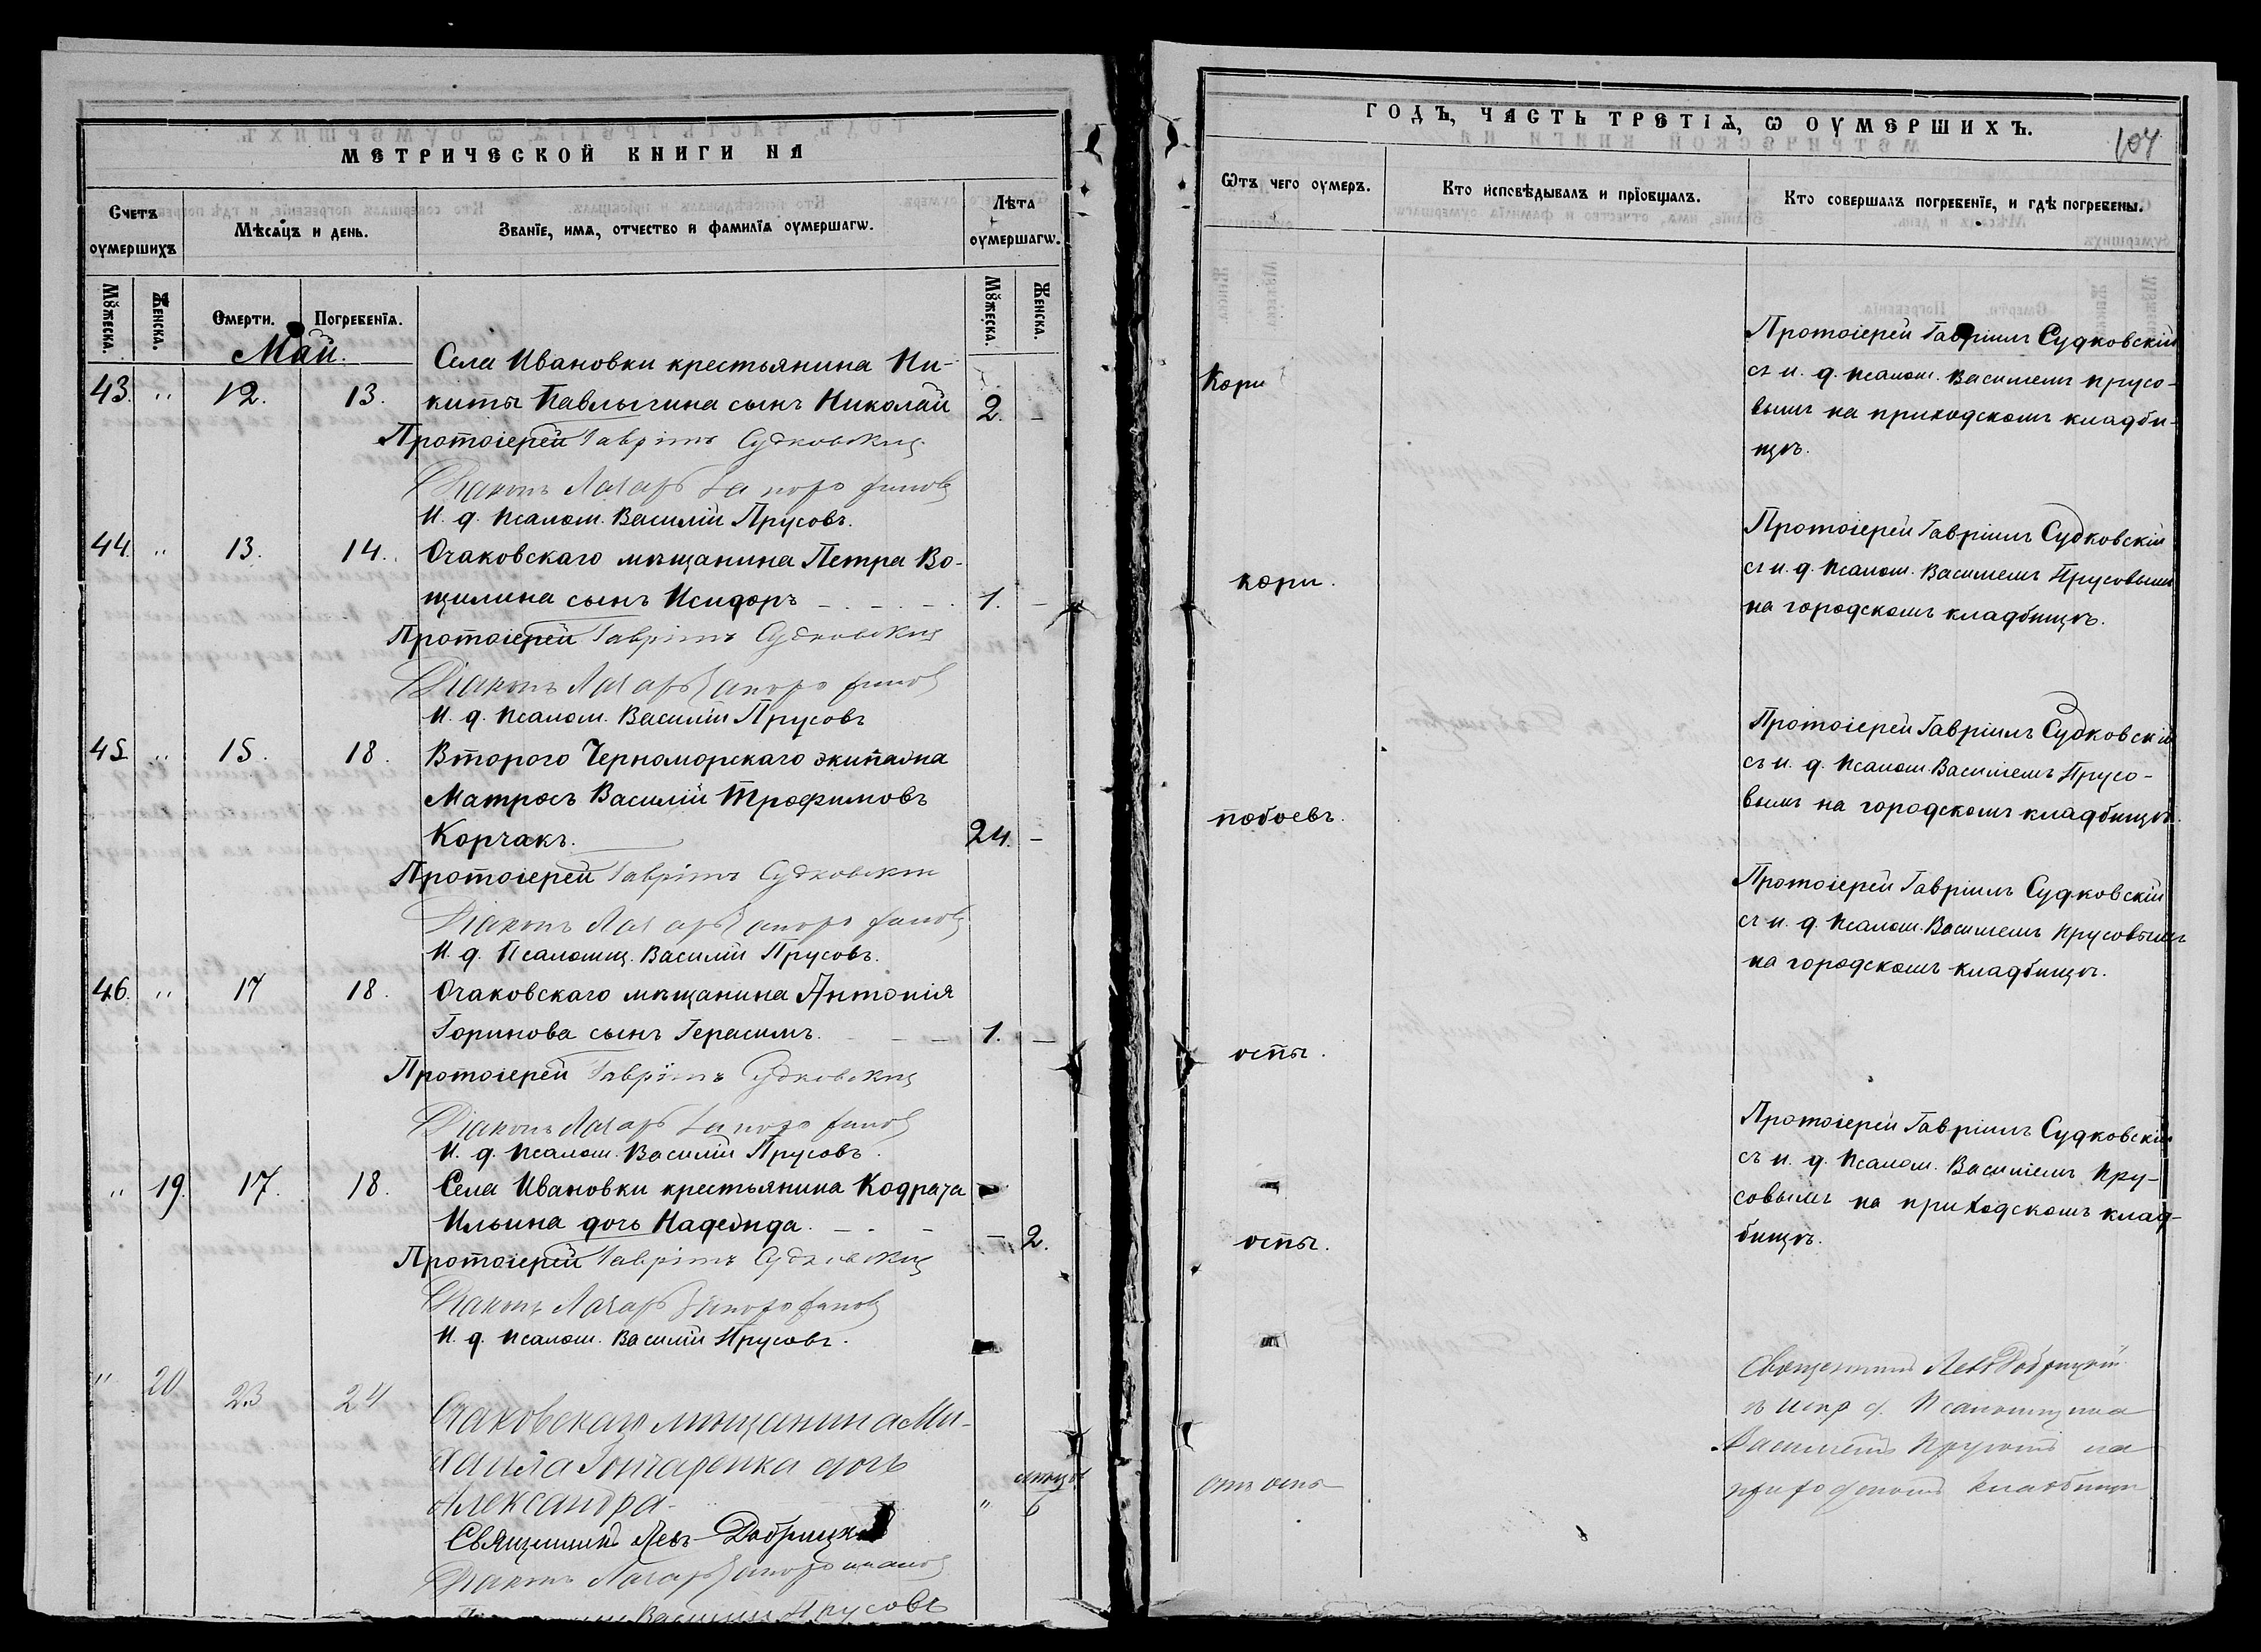 МЕТРИЧЕСКОЙ КНИГИ НА
Счетъ оумершихъ
Мѣсяцъ и день.
Званїе, имя, отчество и фамилїя оумершагѡ.
Лѣта оумершагѡ.
Мꙋжеска.
Женска.
Смерти.
Погребенїя.
Мꙋжеска.
Женска.
Май.
Села Ивановки крестьянина Ни-
43. " 12. 13. киты Павлычина сынъ Николай 2. –
Протоіерей Гавріилъ Судковскій
Діаконъ Лазарь
И. д. псалом. Василій Прусовъ.
44. " 13. 14. Очаковскаго мѣщанина Петра Во-
щилина сынъ Исидоръ 1. –
Протоіерей Гавріилъ Судковскій
Діаконъ Лазарь
И. д. псалом. Василій Прусовъ
45 " 15. 18. Второго Черноморскаго экипажа
Матросъ Василій Трофимовъ
Корчакъ. 24. –
Протоіерей Гавріилъ Судковскій
Діаконъ Лазарь
И. д. Псаломщ. Василій Прусовъ.
46. " 17 18. Очаковскаго мѣщанина Антонія
Горинова сынъ Герасимъ. 1. –
Протоіерей Гавріилъ Судковскій
Діаконъ Лазарь
И. д. псалом. Василій Прусовъ.
" 19. 17. 18. Села Ивановки крестьянина Кодрата
Ильина дочь Надежда. – 2.
Протоіерей Гавріилъ Судковскій
Діаконъ Лазарь
И. д. псалом. Василій Прусовъ.
" 20 23 24 Очаковскаго мѣщанина Ми-
хаила Гончаренка дочь
Александра " 6
Священникъ Левъ Добрицкій
Діаконъ Лазарь
Василій Прусовъ
ГОДЪ, ЧАСТЬ ТРЕТІЯ, Ѡ ОУМЕРШИХЪ.
104
Ѿтъ чего оумеръ.
Кто исповѣдывалъ и прїобщалъ.
Кто совершалъ погребенїе, и гдѣ погребены.
Кори
Протоіерей Гавріилъ Судковскій
съ и. д. псалом. Василіемъ Прусо-
вымъ на приходскомъ кладби-
щѣ.
кори.
Протоіерей Гавріилъ Судковскій
съ и. д. псалом. Василіемъ Прусовымъ
на городскомъ кладбищѣ.
побоевъ.
Протоіерей Гавріилъ Судковскій
съ и. д. псалом. Василіемъ Прусо-
вымъ на городскомъ кладбищѣ.
оспы.
Протоіерей Гавріилъ Судковскій
съ и. д. псалом. Василіемъ Прусовымъ
на городскомъ кладбищѣ.
оспы.
Протоіерей Гавріилъ Судковскій
съ и. д. псалом. Василіемъ Пру-
совымъ на приходскомъ клад-
бищѣ.
отъ оспы
Священникъ Левъ Добрицкій
съ испр д. Псаломщика
Василіемъ Прусовымъ на
приходскомъ кладбищѣ